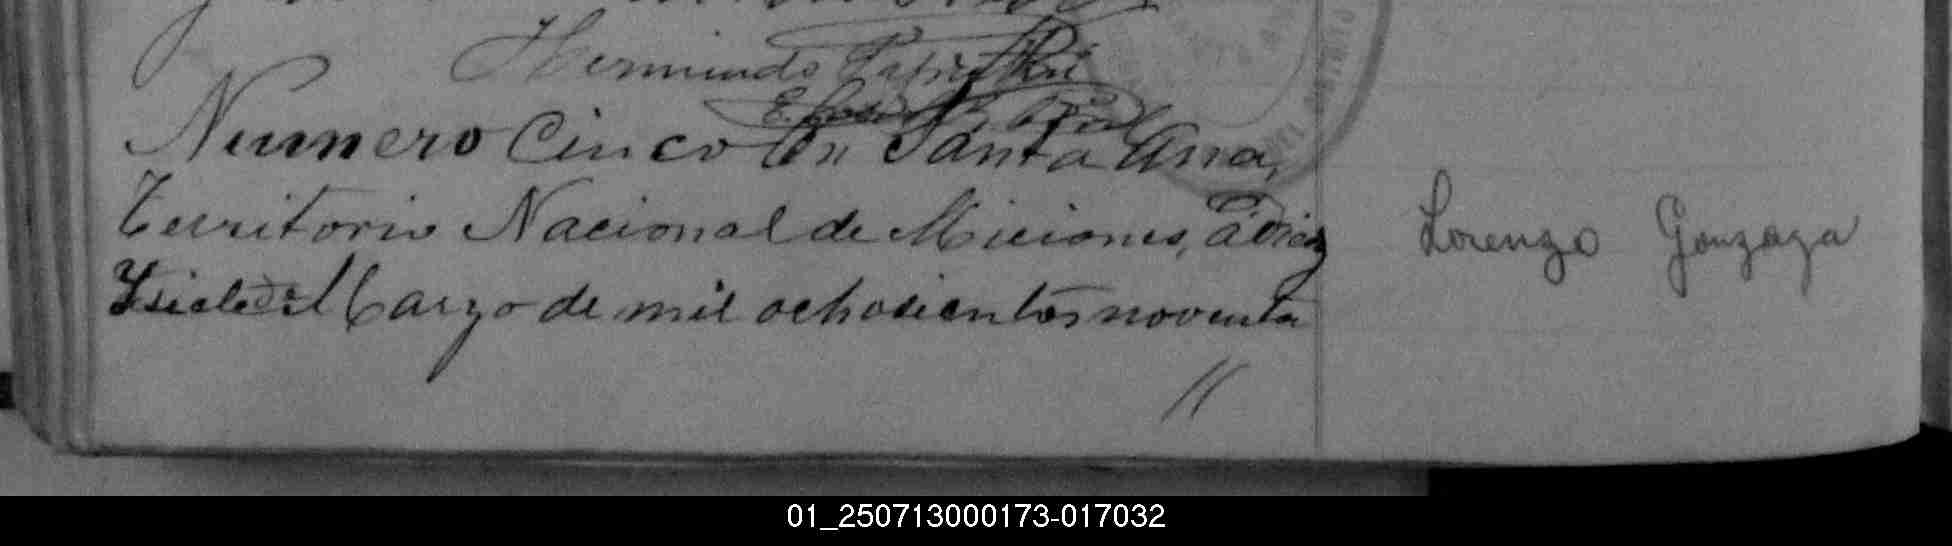 Hermindo
Numero Cinco En Santa Ana,
Territorio Nacional de Miciones, á Diez
Ysiete de Marzo de mil ochosientos noventa
Lorenzo Gonzaga
01_250713000173-017032